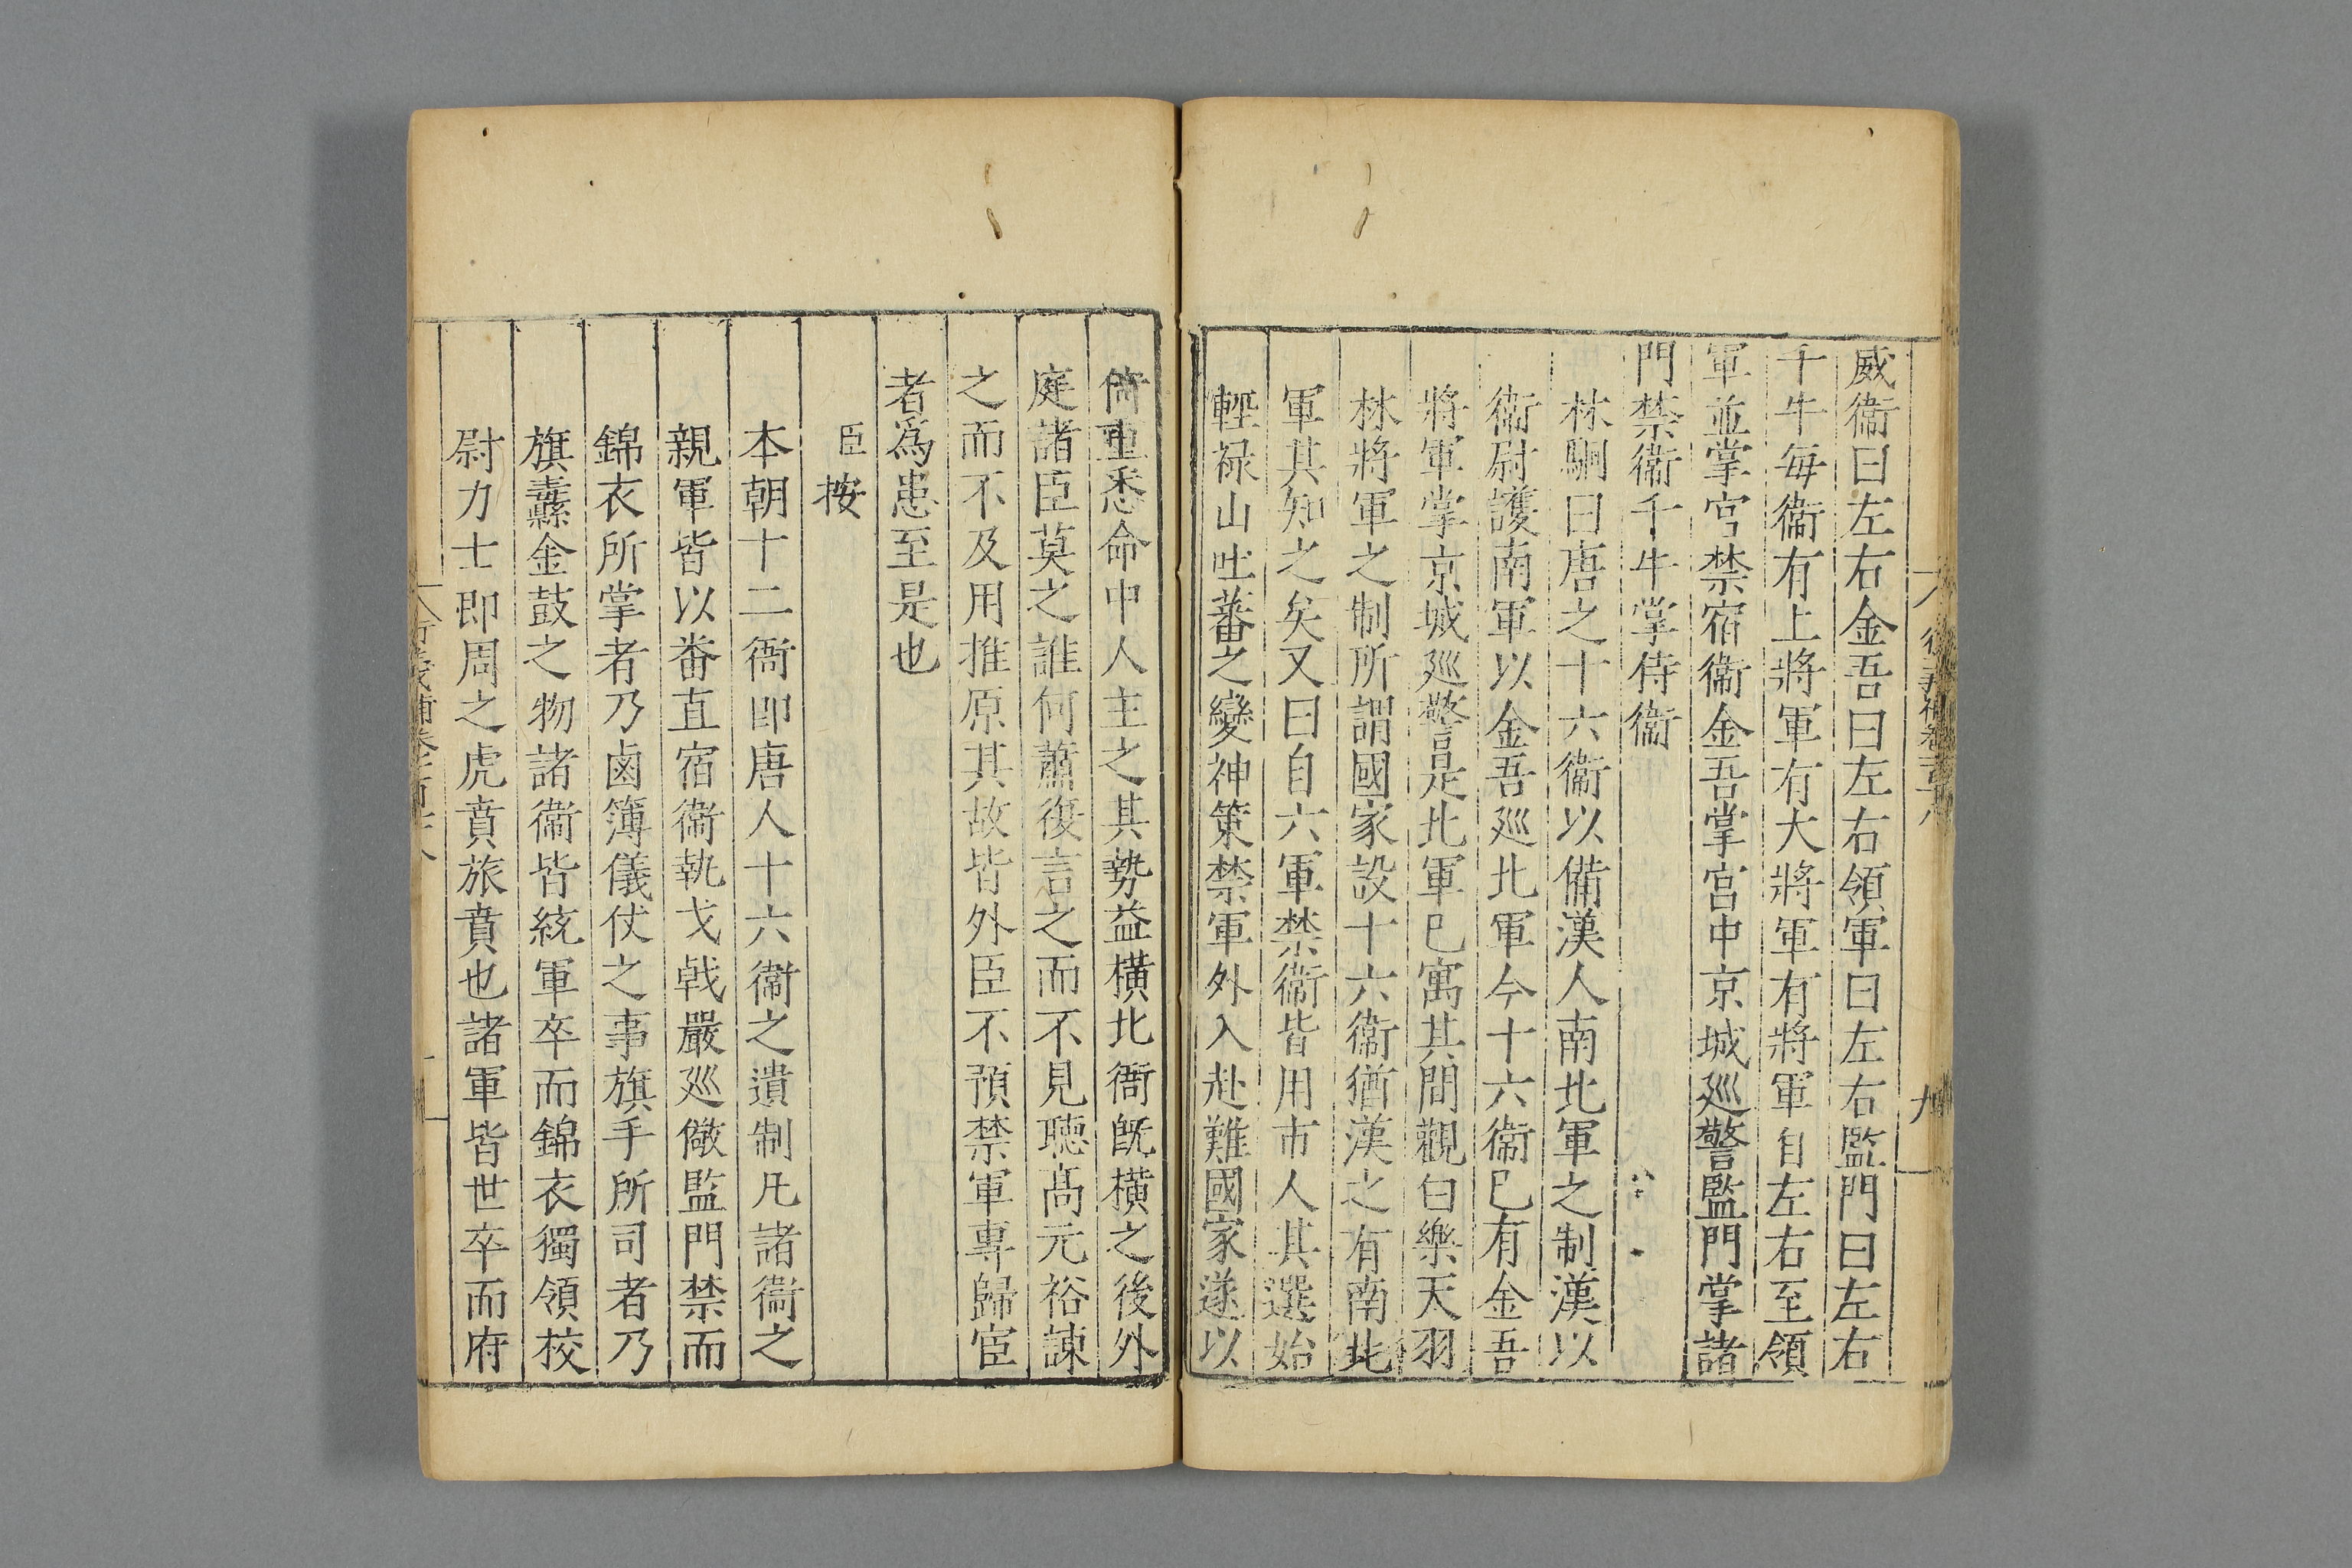 威衞曰左右金吾曰左右領軍曰左右監門曰左右
千牛每衞有上將軍有大將軍有將軍自左右至領
軍並掌宮禁宿衞金吾掌宮中京城廵警監門掌諸
門禁衞千牛掌侍衞
林駉曰唐之十六衞以備漢人南北軍之制漢以
衞尉護南軍以金吾廵北軍今十六衞已有金吾
將軍掌京城廵警是北軍已寓其間觀白樂天羽
林將軍之制所謂國家設十六衞猶漢之有南北
軍其知之矣又曰自六軍禁衞皆用市人其選始
輕禄山吐蕃之變神策禁軍外入赴難國家遂以
倚重悉命中人主之其勢益橫北衙旣橫之後外
庭諸臣莫之誰何蕭復言之而不見聽高元裕諫
之而不及用推原其故皆外臣不預禁軍專歸宦
者爲患至是也
臣按
本朝十二衞即唐人十六衞之遺制凡諸衞之
親軍皆以畨直宿衞執戈戟嚴廵儆監門禁而
錦衣所掌者乃鹵簿儀仗之事旗手所司者乃
旗纛金鼓之物諸衞皆統軍卒而錦衣獨領校
尉力士即周之虎賁旅賁也諸軍皆世卒而府